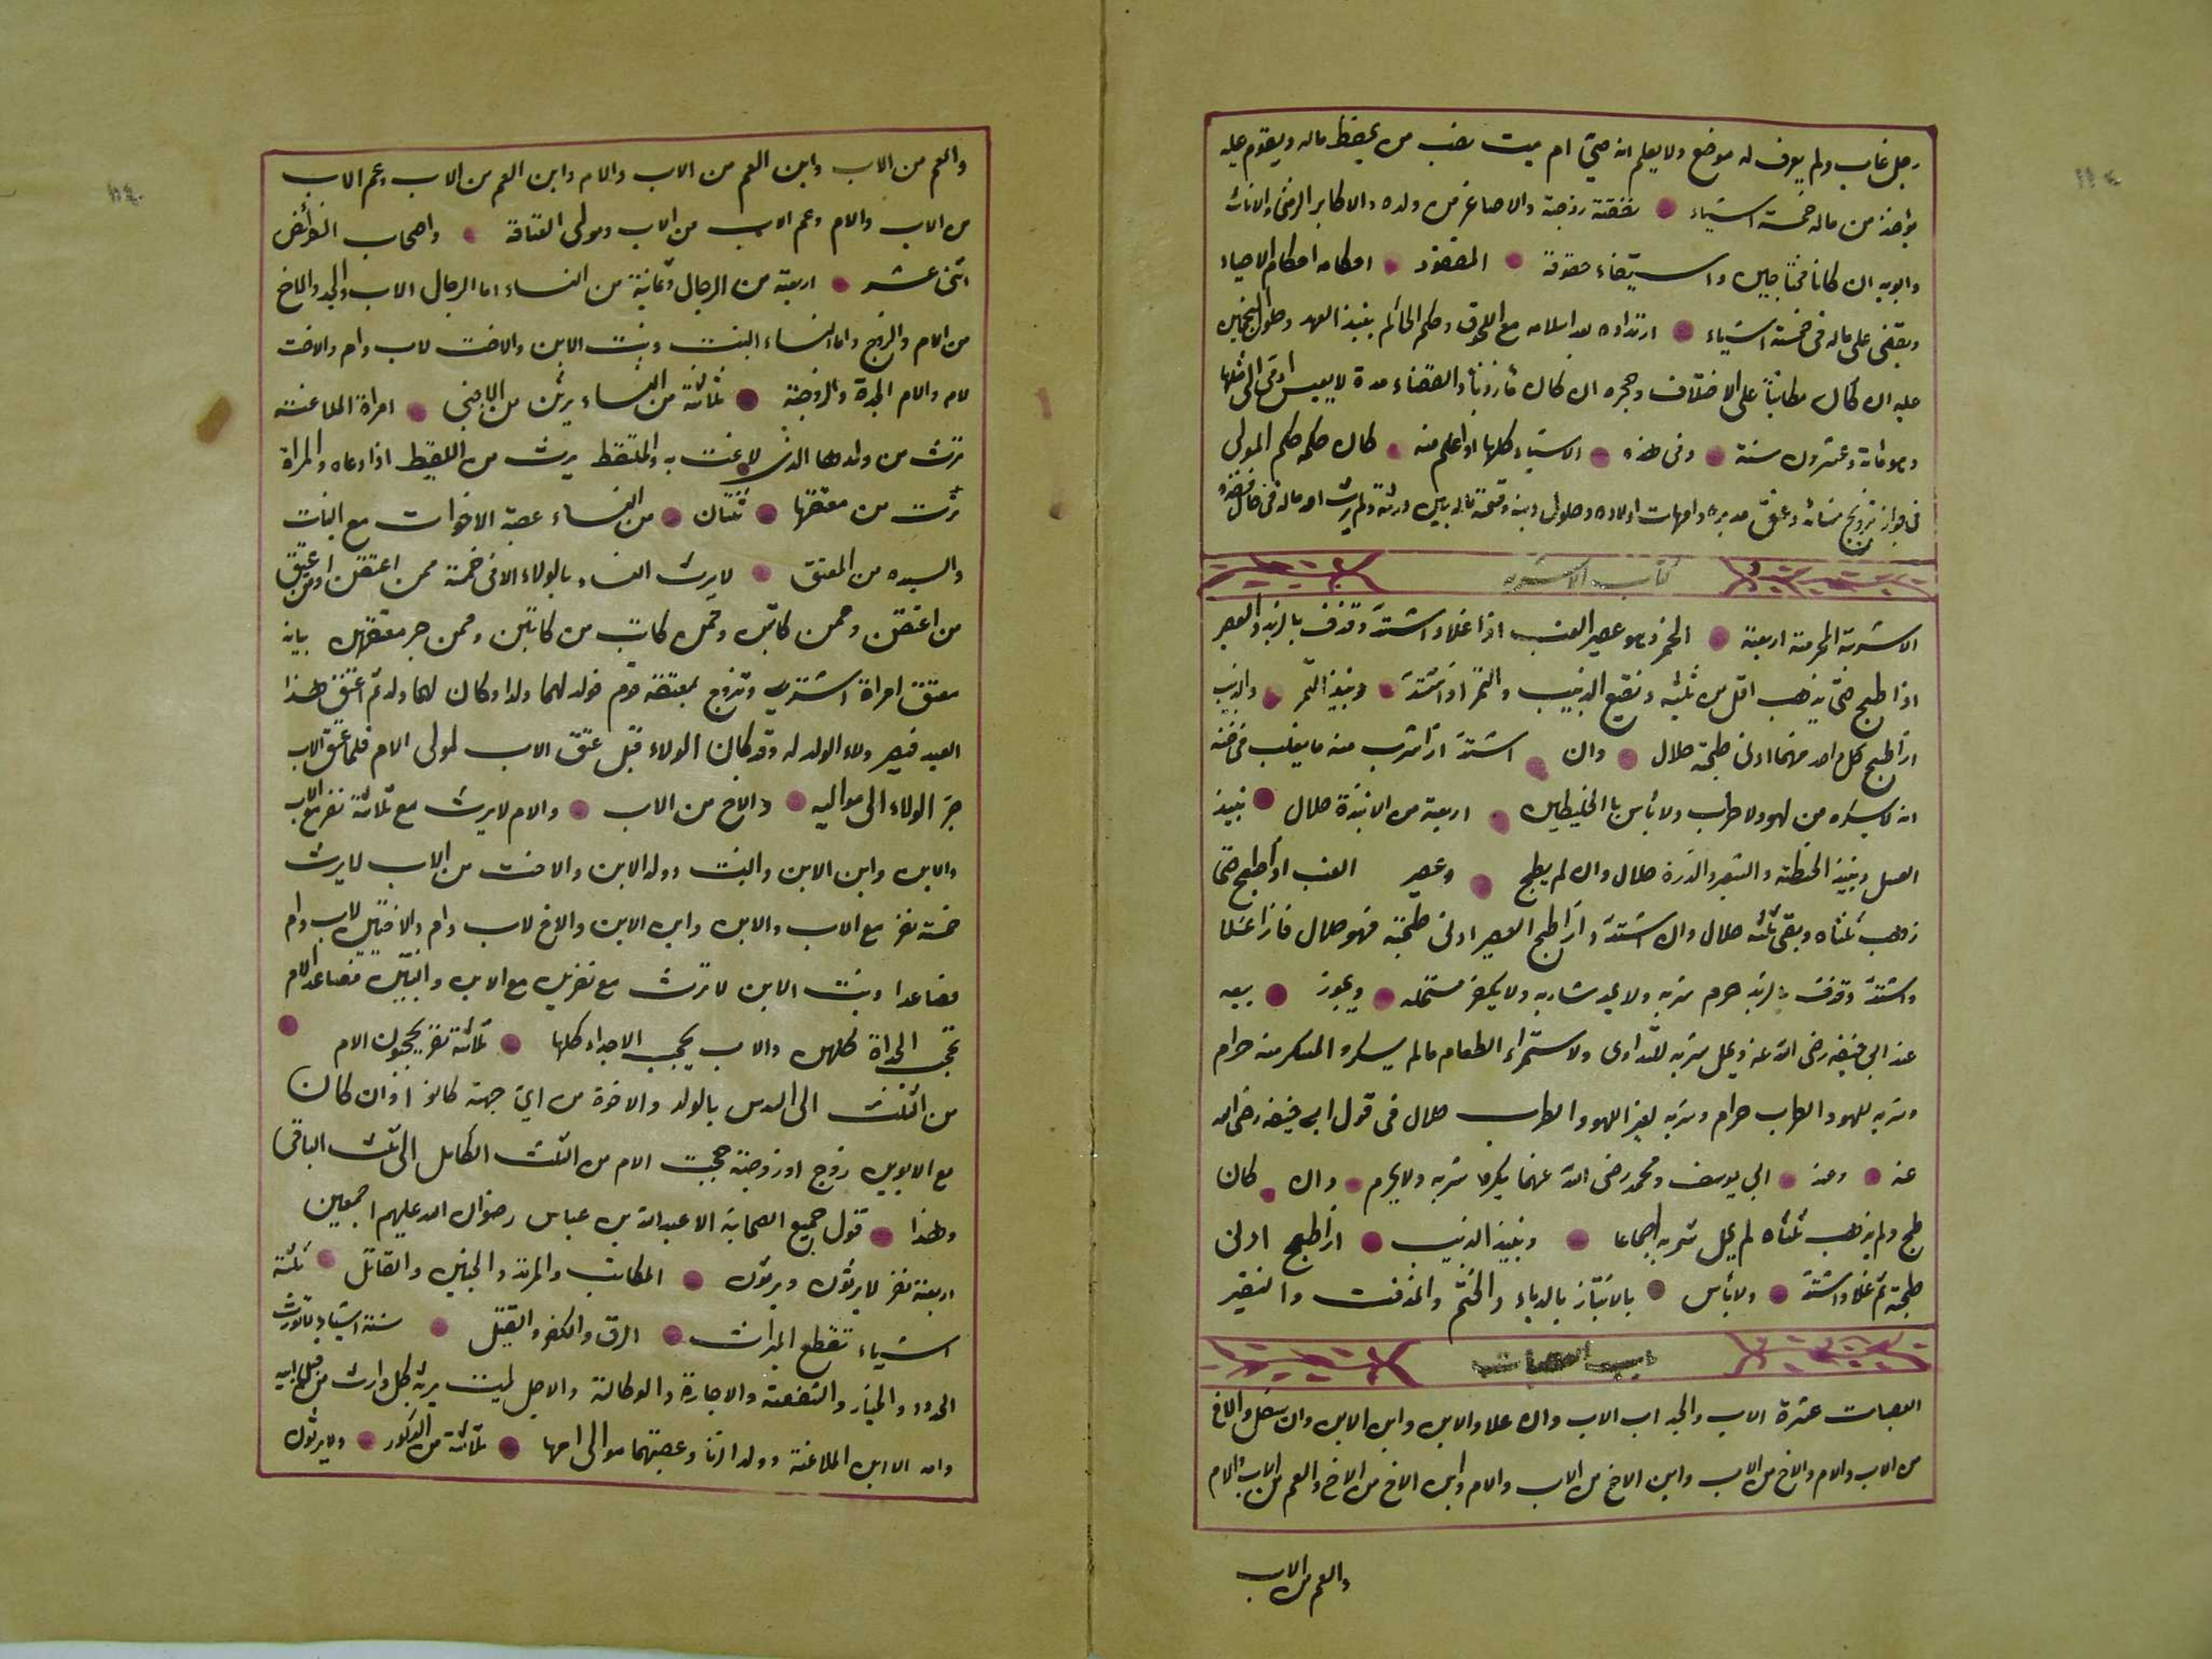 رجل غاب ولم يعرف له موضع ولا يعلم انه حيّ ام ميت نصب من يحفظ ماله ويقوم عليه
يؤخذ من ماله خمسة اشياء نفقة زوجته والاصاغر من ولده والاكابر الزمنى والاناث
وابويه ان كانا محتاجين واستيفاء حقوقه المفقود احكامه احكام الاحياء
ويقضى على ماله في خمسة اشياء ارتداده بعد اسلامه مع اللحوق وحكم الحاكم
عليه ان كان مكاتبا على الاختلاف وحجره ان كان مأذونا والقضاء مدة لا يعيش الى مثلها
وهو مائة وعشرون سنة وفي هذه الاشياء كلها اذا علم منه كان حكمه حكم الموتى
في جواز تزويج نسائه وعتق مدبره وامهات اولاده وحلول دينه وقسمة ماله بين ورثته ولم يرث
كتاب الاشربه
الاشربة المحرمة اربعة الخمر وهو عصير العنب اذا غلا واشتدّ وقذف بالزبد والعصير
اذا طبخ حتى يذهب اقل من ثلثيه ونقيع الزبيب والتمر اذا اشتدّ ونبيذ التمر والزبيب
اذا طبخ كل واحد منهما ادنى طبخة حلال وان اشتدّ اذا شرب منه ما يغلب في ظنه
انه لا يسكره من لهو ولا طرب ولا بأس بالخليطين اربعة من الانبذة حلال نبيذ
العسل ونبيذ الحنطة والشعير والذرة حلال وان لم يطبخ وعصير العنب اذا طبخ حتى
ذهب ثلثاه وبقي ثلثه حلال وان اشتدّ واذا طبخ العصير ادنى طبخة فهو حلال فاذا غلا
واشتدّ وقذف بالزبد حرم شربه ولا يحد شاربه ولا يكفر مستحله ويجوز بيعه
عند ابي حنيفه رضي الله عنه ويحل شربه للتداوى ولاستمراء الطعام مالم يسكر والمسكر منه حرام
وشربه للهو والطرب حرام وشربه لغير اللهو والطرب حلال في قول ابي حنيفه رضي الله
عنه وعند ابي يوسف ومحمد رضي الله عنهما يكره شربه ولا يحرم وان كان
طبخ ولم يذهب ثلثاه لم يحل شربه اجماعا ونبيذ الزبيب اذا طبخ ادنى
طبخة ثم غلا واشتدّ ولا بأس بالانتباذ بالدباء والحنتم والمزفت والنقير
باب العصبات
العصبات عشرة الاب والجد اب الاب وان علا والابن وابن الابن وان سفل والاخ
من الاب والام والاخ من الاب وابن الاخ من الاب والام وابن الاخ من الاخ والعم من الاب والام
والعم من الاب
والعم من الاب وابن العم من الاب والام وابن العم من الاب وعم الاب
من الاب والام وعم الاب من الاب ومولى العتاقة واصحاب الفرائض
اثنى عشر اربعة من الرجال وثمانية من النساء اما الرجال الاب والجد والاخ
من الام والزوج واما النساء البنت وبنت الابن والاخت لاب وام والاخت
لام والام الجدة والزوجة ثلاثة من النساء يرثن من الاجنبي امراة الملاعنة
ترث من ولدها الذي لاعنت به والملتقط يرث من اللقيط اذا ادعاه والمراة
ترث من معتقها ثنتان من النساء عصبة الاخوات مع البنات
والسيده من المعتق لا يرث النساء بالولاء الا في خمسة ممن اعتقن او من
من اعتقن وممن كاتبن وممن كاتب من كاتبن وممن جر معتقهن بيانه
معتق امراة اشتريت وتزوج بمعتقة قوم فولد لهما ولدا وكان لهما ولد ثم اعتق هذا
العبد فيصير ولاء الولد له وقد كان الولاء قبل عتق الاب لمولى الام فلما عتق الاب
جرّ الولاء الى مواليه والاخ من الاب والام لا يرث مع ثلاثة نفر مع الاب
والابن وابن الابن والبنت وولد الابن والاخت من الاب لا يرث
خمسة نفر مع الاب والابن وابن الابن والاخ لاب وام والاختين لاب وام
فصاعدا وبنت الابن لا ترث مع نفرين مع الابن والبنتين فصاعدا الام
تحجب الجداة كلهن والاب يحجب الاجداد كلها ثلاثة نفر يحجبون الام
من الثلث الى السدس بالولد والاخوة من اىّ جهة كانوا وان كان
مع الابوين زوج او زوجة حجبت الام من الثلث الكامل الى ثلث الباقي
وهذا قول جميع الصحابة الا عبد الله بن عباس رضوان الله عليهم اجمعين
اربعة نفر لا يرثون ويرثون المكاتب والمرتد والجنين والقاتل ثلثة
اشياء تقطع الميراث الرق والكفر والقتل ستة اشياء لا تورث
الحدود والخيار والشفعة والاجارة والوكالة والاجل لميت يرثه كل وارث
وامه الا ابن الملاعنة وولد الزنا وعصبتهما موالى امها ثلاثة من الذكور ولا يرثون